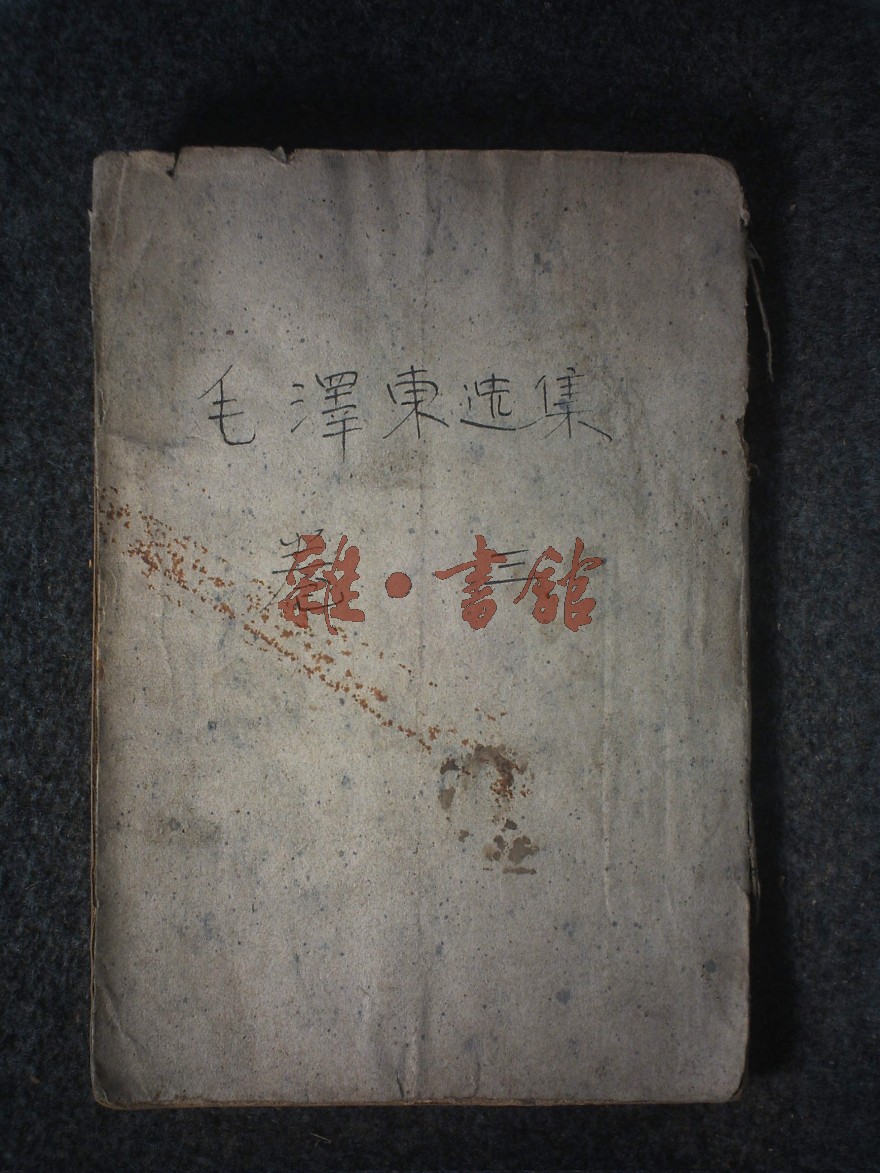 毛澤東选集
卷 三
雜·書館